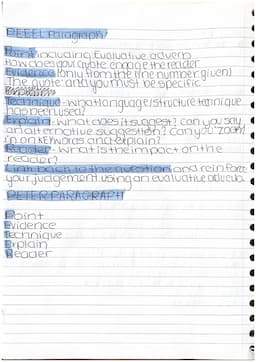 PEEEL Paragraph
Point including Evaluative adverb
How does your quote engage the reader
Evidence (only from the line number given)
The quote and you must be specific
Technique - what language/structure technique
has been used?
Explain - What does it suggest? can you say
an alternative suggestion? Can you 'zoom'
in on key words and explain?
Reader - What is the impact on the
reader?
Link back to the question and reinforce
your judgement using an evaluative adverb.
PETER PARAGRAPH
Point
Evidence
Technique
Explain
Reader